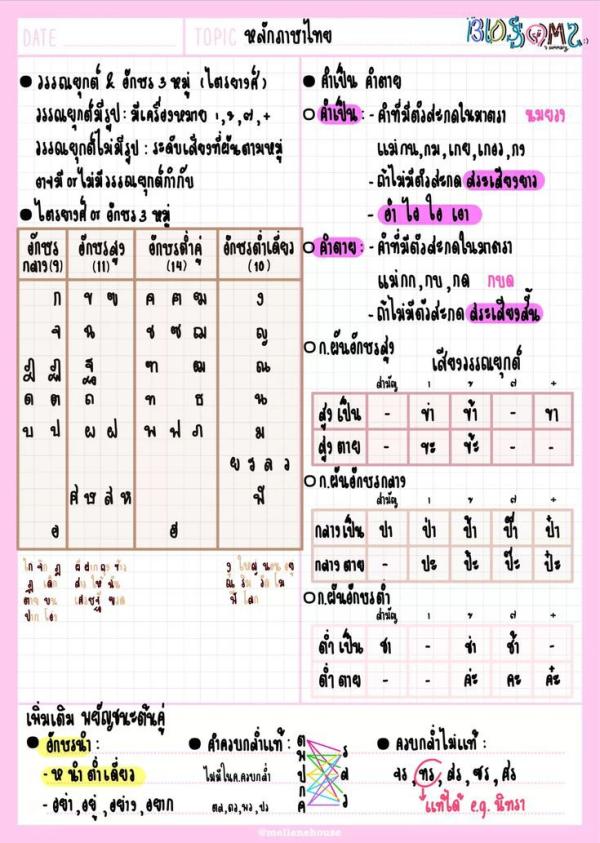 DATE
TOPIC หลักภาษาไทย
BLOSSOMS
's summary
● วรรณยุกต์ & อักษร 3 หมู่ (ไตรยางศ์)
วรรณยุกต์มีรูป : มีเครื่องหมาย ่, ้, ๊, ๋
วรรณยุกต์ไม่มีรูป : ระดับเสียงที่ผันตามหมู่
อาจมี or ไม่มีวรรณยุกต์กำกับ
● ไตรยางศ์ or อักษร 3 หมู่
อักษรกลาง(9) อักษรสูง (11) อักษรต่ำคู่ (14) อักษรต่ำเดี่ยว (10)
ก ข ฃ ค ฅ ฆ ง
จ ฉ ช ซ ฌ ญ
ฎ ฏ ฐ ฑ ฒ ณ
ด ต ถ ท ธ น
บ ป ผ ฝ พ ฟ ภ ม
ย ร ล ว
ศ ษ ส ห ฬ
อ ฮ
ไก่ จิก ฎ ผี ฝาก ถุง ข้าว งู ใหญ่ นอน อยู่
ฏ เด็ก สาร ให้ ฉัน ณ ริม วัด โม
ตาย บน เศรษฐี ขวด ฬี โลก
ปาก โอ่ง
● คำเป็น คำตาย
○ คำเป็น : - คำที่มีตัวสะกดในมาตรา นมยวง
แม่กน, กม, เกย, เกอว, กง
- ถ้าไม่มีตัวสะกด สระเสียงยาว
- อำ ไอ ใอ เอา
○ คำตาย : - คำที่มีตัวสะกดในมาตรา
แม่กก, กบ, กด กบด
- ถ้าไม่มีตัวสะกด สระเสียงสั้น
○ ก.ผันอักษรสูง
เสียงวรรณยุกต์
สามัญ ่ ้ ๊ ๋
สูง เป็น - ข่า ข้า - ขา
สูง ตาย - ขะ ข้ะ - -
○ ก.ผันอักษรกลาง
สามัญ ่ ้ ๊ ๋
กลางเป็น ปา ป่า ป้า ป๊า ป๋า
กลางตาย - ปะ ป้ะ ป๊ะ ป๋ะ
○ ก.ผันอักษรต่ำ
สามัญ ่ ้ ๊ ๋
ต่ำ เป็น ชา - ช่า ช้า -
ต่ำ ตาย - - ค่ะ คะ ค๋ะ
เพิ่มเติม พยัญชนะต้นคู่
● อักษรนำ :
- ห นำ ต่ำเดี่ยว
- อย่า, อยู่, อย่าง, อยาก
● คำควบกล้ำแท้ :
ไม่มีใน ค.ควบกล้ำ
ต พ ป ก ค
ร ล ว
● ควบกล้ำไม่แท้ :
จร, ทร, สร, ซร, ศร
แท้ได้ e.g. นิทรา
@mellanehouse